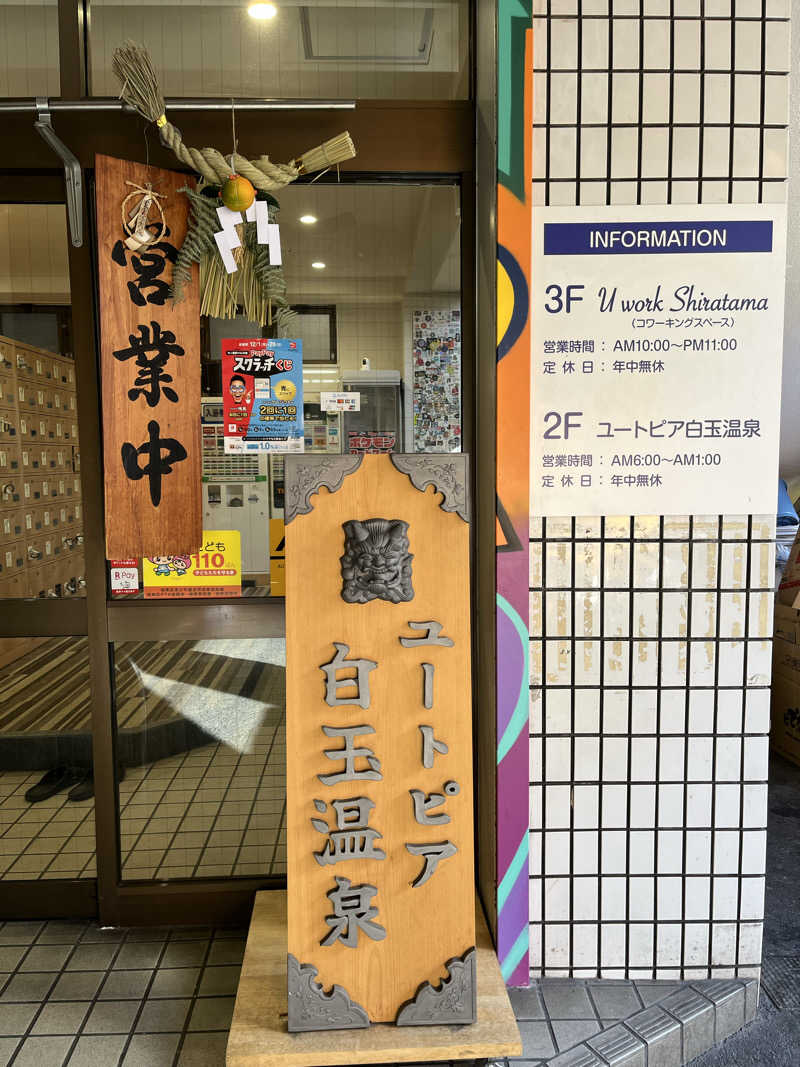 営業中
PayPay
スクラッチくじ
2回に1回
1.0%
110
R Pay
ユートピア
白玉温泉
INFORMATION
3F U work Shiratama
（コワーキングスペース）
営業時間 ： AM10:00～PM11:00
定 休 日 ： 年中無休
2F ユートピア白玉温泉
営業時間 ： AM6:00～AM1:00
定 休 日 ： 年中無休